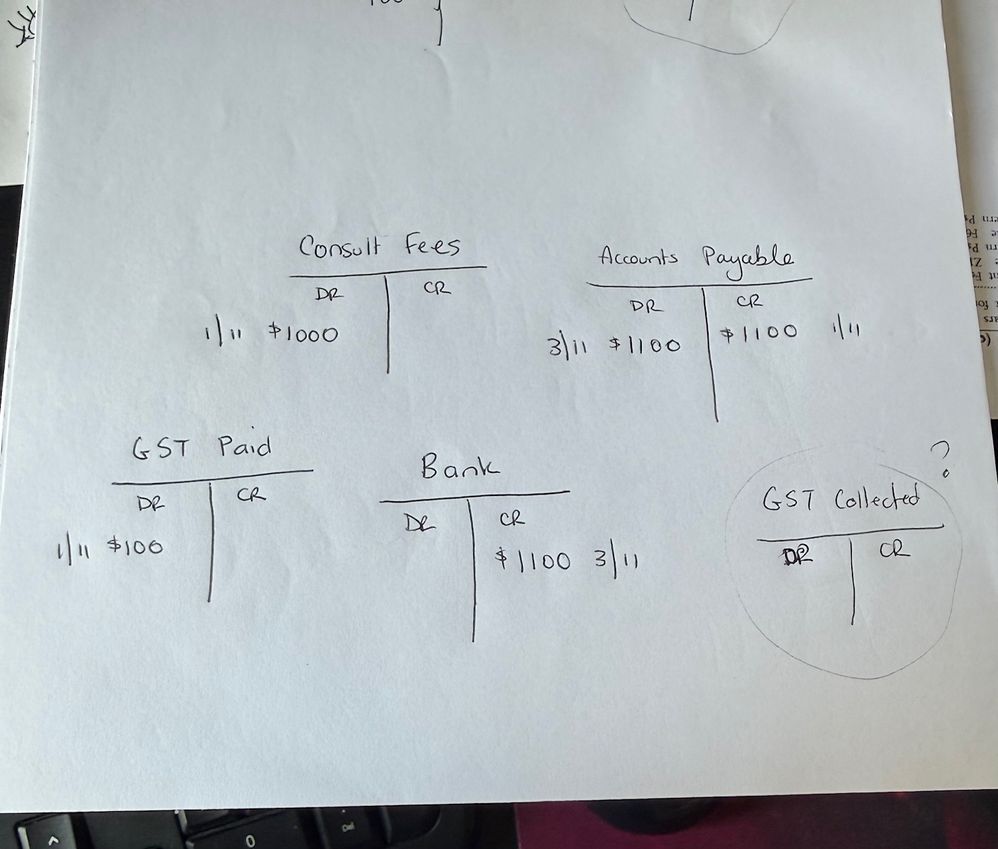 Consult Fees
DR CR
1/11 $1000
Accounts Payable
DR CR
3/11 $1100 $1100 1/11
GST Paid
DR CR
1/11 $100
Bank
DR CR
$1100 3/11
?
GST Collected
DR CR
0